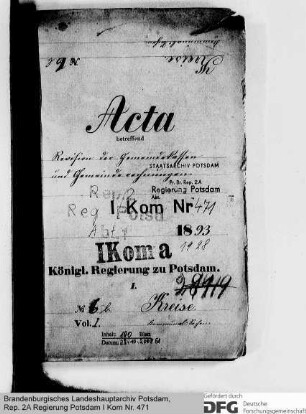 Kreise
Acta
betreffend
Revision der Gemeindekassen
und Gemeinderechnungen
STAATSARCHIV POTSDAM
Pr. Br. Rep. 2A
Regierung Potsdam
Abt.
I Kom Nr 471
Rep 2
Reg Potsd
1893
I Kom a
Königl. Regierung zu Potsdam.
I.
Kreise
Vol. I.
Inhalt: 190 Blatt
Datum:
Brandenburgisches Landeshauptarchiv Potsdam,
Rep. 2A Regierung Potsdam I Kom Nr. 471
Gefördert durch
DFG Deutsche
Forschungsgemeinschaft